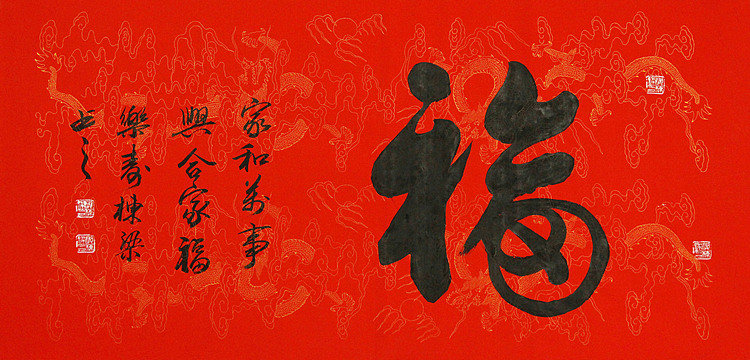 福
家和萬事
興合家福
樂壽棟梁